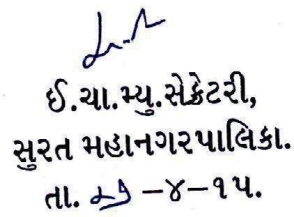 ઈ.ચા.મ્યુ.સેક્રેટરી,
સુરત મહાનગરપાલિકા.
તા. ૨૭ -૪-૧૫.